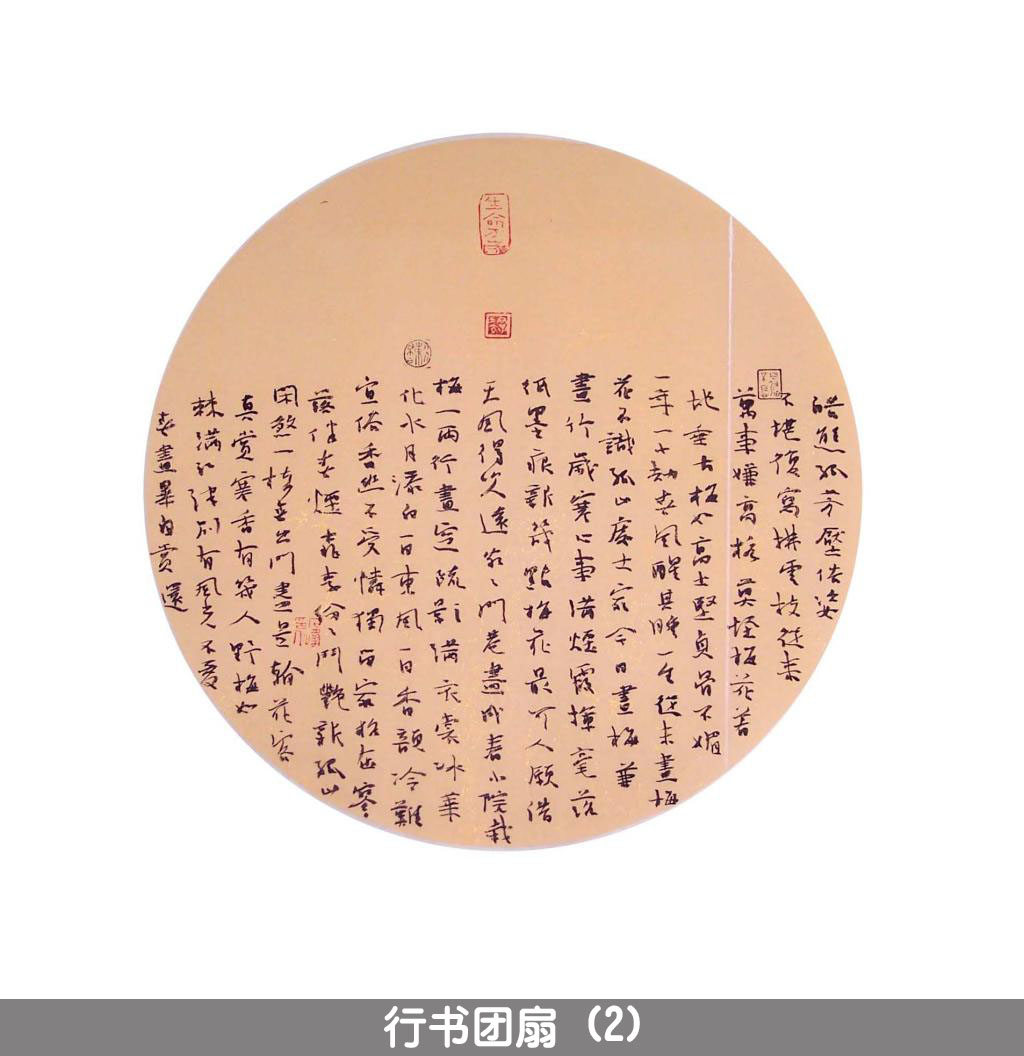 皓態孤芳壓俗姿
不堪復寫拂雲枝從来
萬事嫌高格莫怪梅花着
地垂古梅如高士堅貞骨不媚
一年一十劫春風醒其睡一生從未畫梅
花不識孤山處士家今日畫梅兼
畫竹歲寒心事满煙霞揮毫落
纸墨痕新幾點梅花最可人願借
天風得吹遠家々門巷盡成春小院栽
梅一兩行畫空疏影满衣裳冰華
化水月添白一日東風一日香韻冷難
宜俗香幽不受憐獨留家格在寒
伴春煙桃李紛々鬥艷新孤山
閑煞一枝春出門盡是看花客
真赏寒香有幾人野梅如
棘满江津别有風光不愛
春畫畢自赏還
行书团扇（2）